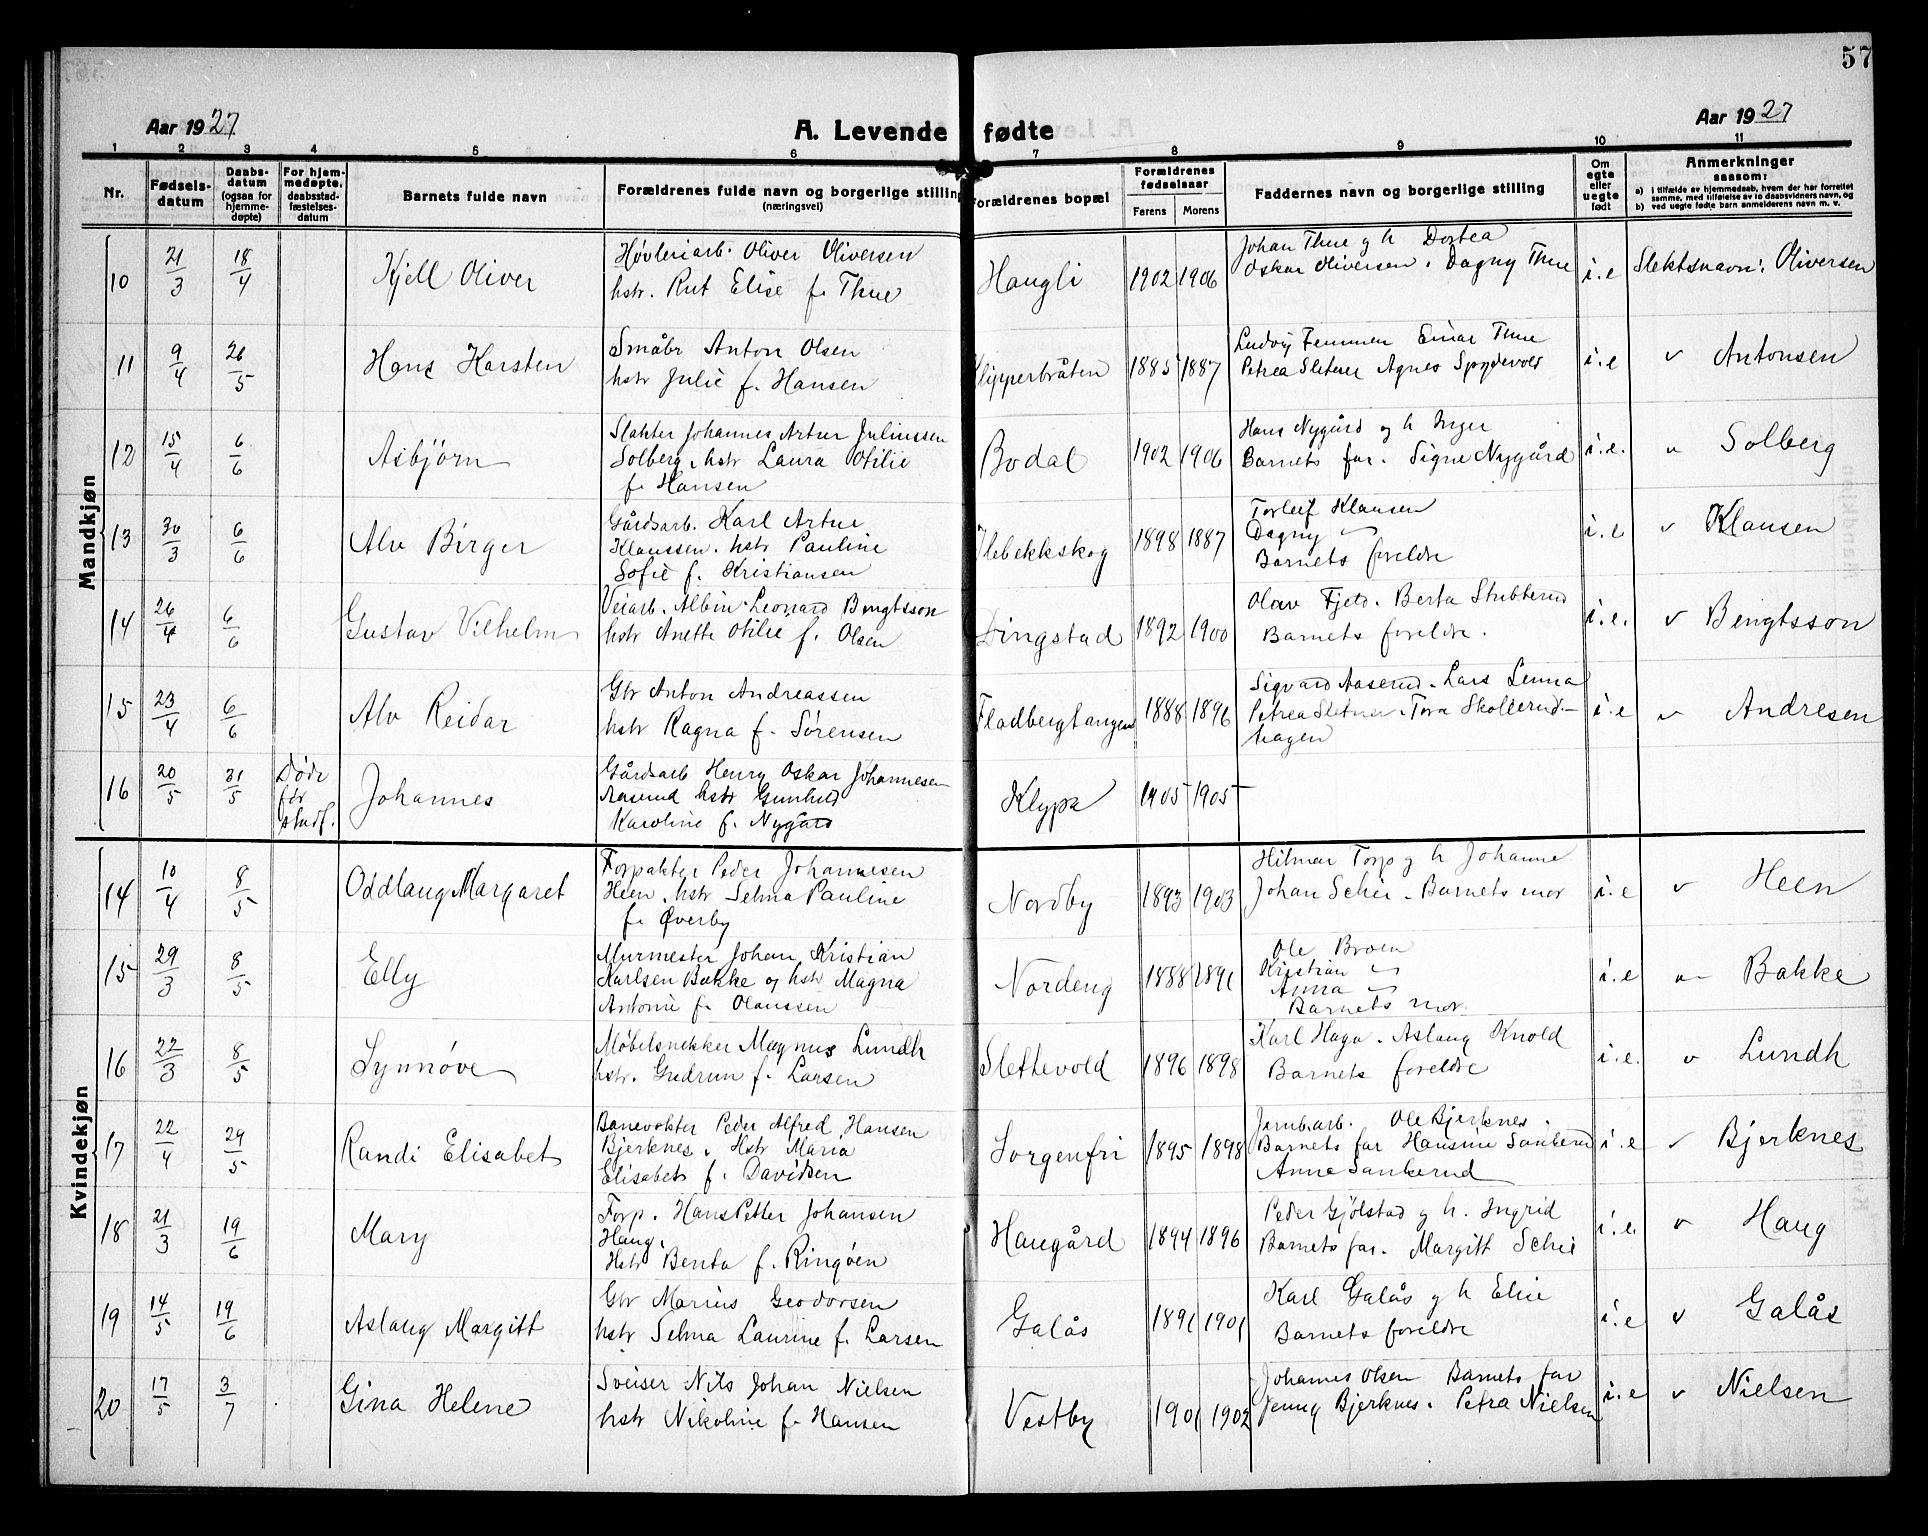 57
Aar 1927
A. Levende fødte
Aar 1927
1 2 3 4 5 6 7 8 9 10 11
Nr.
Fødsels-
datum
Daabs-
datum
(ogsaa for
hjemme-
døpte)
For hjem-
medøpte,
daabsstad-
fæstelses-
datum
Barnets fulde navn
Forældrenes fulde navn og borgerlige stilling
(næringsvei)
Forældrenes bopæl
Forældrenes
fødselsaar
Farens Morens
Faddernes navn og borgerlige stilling
Om
egte
eller
uegte
født
Anmerkninger
saasom:
a) i tilfælde av hjemmedaab, hvem der har forrettet
samme, med tilføielse av to daabsvidners navn, og
b) ved uegte fødte barn anmelderens navn m. v.
Mandkjøn
10 21/3 18/4 Kjell Oliver
Høvleriarb. Oliver Oliversen
hstr. Rut Elise f. Thue
Haugli 1902 1906
Johan Thue og h Dortea
Oskar Oliversen. Dagny Thue
i.e Slektsnavn: Oliversen
11 9/4 26/5 Hans Karsten
Småbr Anton Olsen
hstr Julie f. Hansen
Klipperbråten 1885 1887
Ludvig Femmen Einar Thue
Petrea Sletner Agnes Spydevold
i.e " Antonsen
12 15/4 6/6 Asbjørn
Slakter Johannes Artur Juliussen
Solberg. hstr Laura Otilie
f. Hansen
Bodal 1902 1906
Hans Nygård og h Inger
Barnets far. Signe Nygård
i.e. " Solberg
13 30/3 6/6 Alv Birger
Gårdsarb. Karl Artur
Klaussen. hstr Pauline
Sofie f. Kristiansen
Ilebekkskog 1898 1887
Torleif Klausen
Dagny "
Barnets foreldre
i.e " Klausen
14 26/4 6/6 Gustav Vilhelm
Veiarb. Albin Leonard Bengtsson
hstr Anette Otilie f. Olsen
Dingstad 1892 1900
Olav Fjeld. Berta Stubberud
Barnets foreldre.
i.e. " Bengtsson
15 23/4 6/6 Alv Reidar
Gbr Anton Andreassen
hstr Ragna f. Sørensen
Fladbergtangen 1888 1896
Sigvard Aaserud. Lars Lenna
Petrea Sletner. Tora Skollerud-
hagen
i.e " Andresen
16 20/5 31/5
Døde
før
stadf.
Johannes
Gårdsarb Henry Oskar Johannesen
Aaserud hstr Gunhild
Karoline f. Nygård
Klypa 1905 1905
Kvindekjøn
14 10/4 8/5 Oddlaug Margaret
Forpakter Peder Johannesen
Heen. hstr Selma Pauline
f. Øverby
Nordby 1893 1903
Hilmar Torp og h Johanne
Johan Schie. Barnets mor
i.e " Heen
15 29/3 8/5 Elly
Murmester Johan Kristian
Karlsen Bakke og hstr Magna
Antonie f. Olaussen
Nordeng 1888 1891
Ole Braen
Kristian "
Anna "
Barnets mor.
i.e " Bakke
16 22/3 8/5 Synnøve
Møbelsnekker Magnus Lundh
hstr. Gudrun f. Larsen
Slettevold 1896 1898
Karl Haga. Aslaug Knold
Barnets foreldre
i.e. " Lundh
17 22/4 29/5 Randi Elisabet
Banevokter Peder Alfred Hansen
Bjerknes. Hstr Maria
Elisabet f. Davidsen
Sorgenfri 1895 1898
Jernb.arb. Ole Bjerknes.
Barnets far Hansine Sankerud
Anna Sankerud
i.e " Bjerknes
18 21/3 19/6 Mary
Forp. Hans Petter Johansen
Haug.
Hstr Benta f. Ringøen
Haugård 1894 1896
Peder Gjølstad og h. Ingrid
Barnets far. Margitt Schie
i.e. " Haug
19 14/5 19/6 Aslaug Margitt
Gbr Marius Geodorsen
hstr Selma Laurine f. Larsen
Galås 1891 1901
Karl Galås og h Elise
Barnets foreldre
i.e " Galås
20 17/5 3/7 Gina Helene
Sveiser Nils Johan Nielsen
hstr Nikoline f. Hansen
Vestby 1901 1902
Johannes Olsen Barnets far
Jenny Bjerknes. Petra Nielsen
i.e " Nielsen